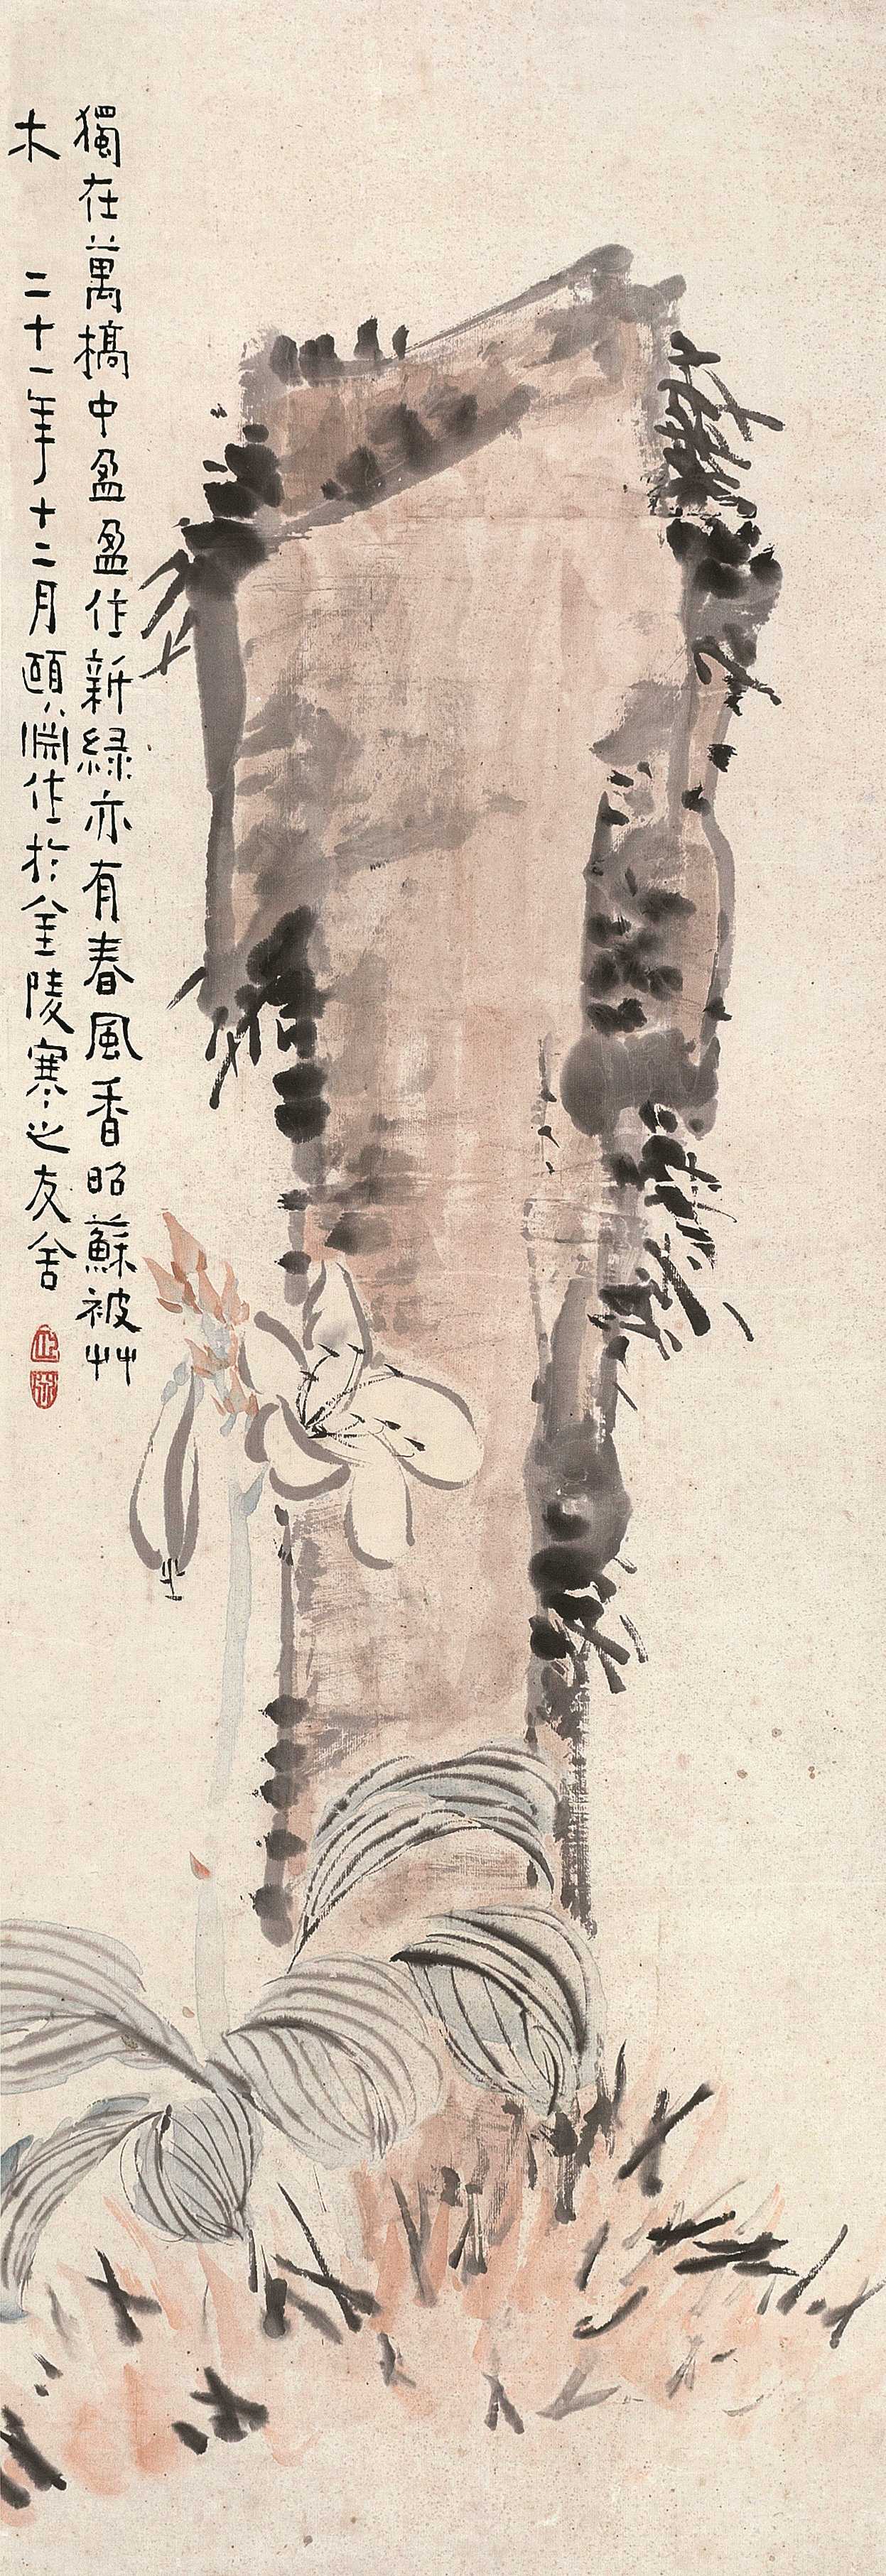 獨在萬槁中盈盈作新綠亦有春風香昭蘇被艸
木　二十一年十二月頤淵作於金陵寒之友舍